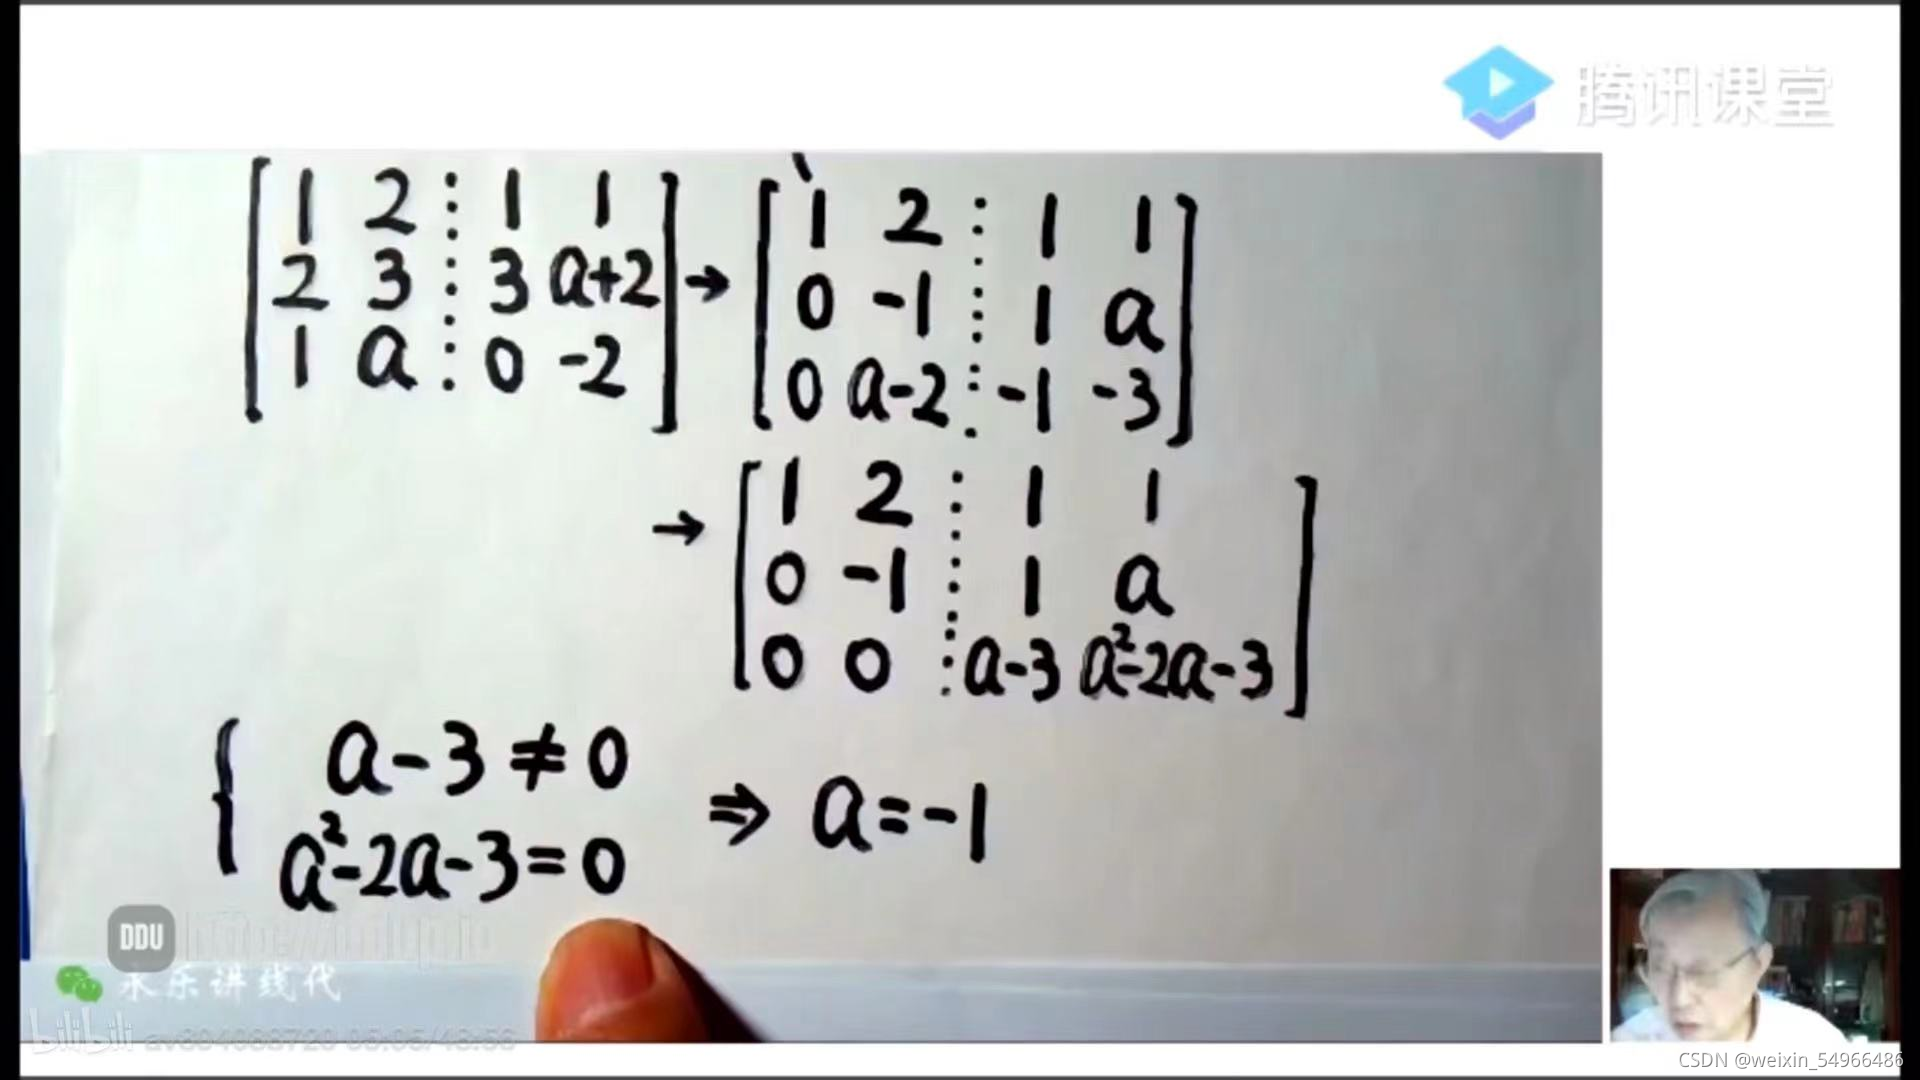 腾讯课堂
1 2 ⋮ 1 1
2 3 ⋮ 3 a+2
1 a ⋮ 0 -2
→
1 2 ⋮ 1 1
0 -1 ⋮ 1 a
0 a-2 ⋮ -1 -3
→
1 2 ⋮ 1 1
0 -1 ⋮ 1 a
0 0 ⋮ a-3 a²-2a-3
a-3≠0
a²-2a-3=0
⇒ a=-1
DDU
永乐讲线代
bilibili
CSDN @weixin_54966486